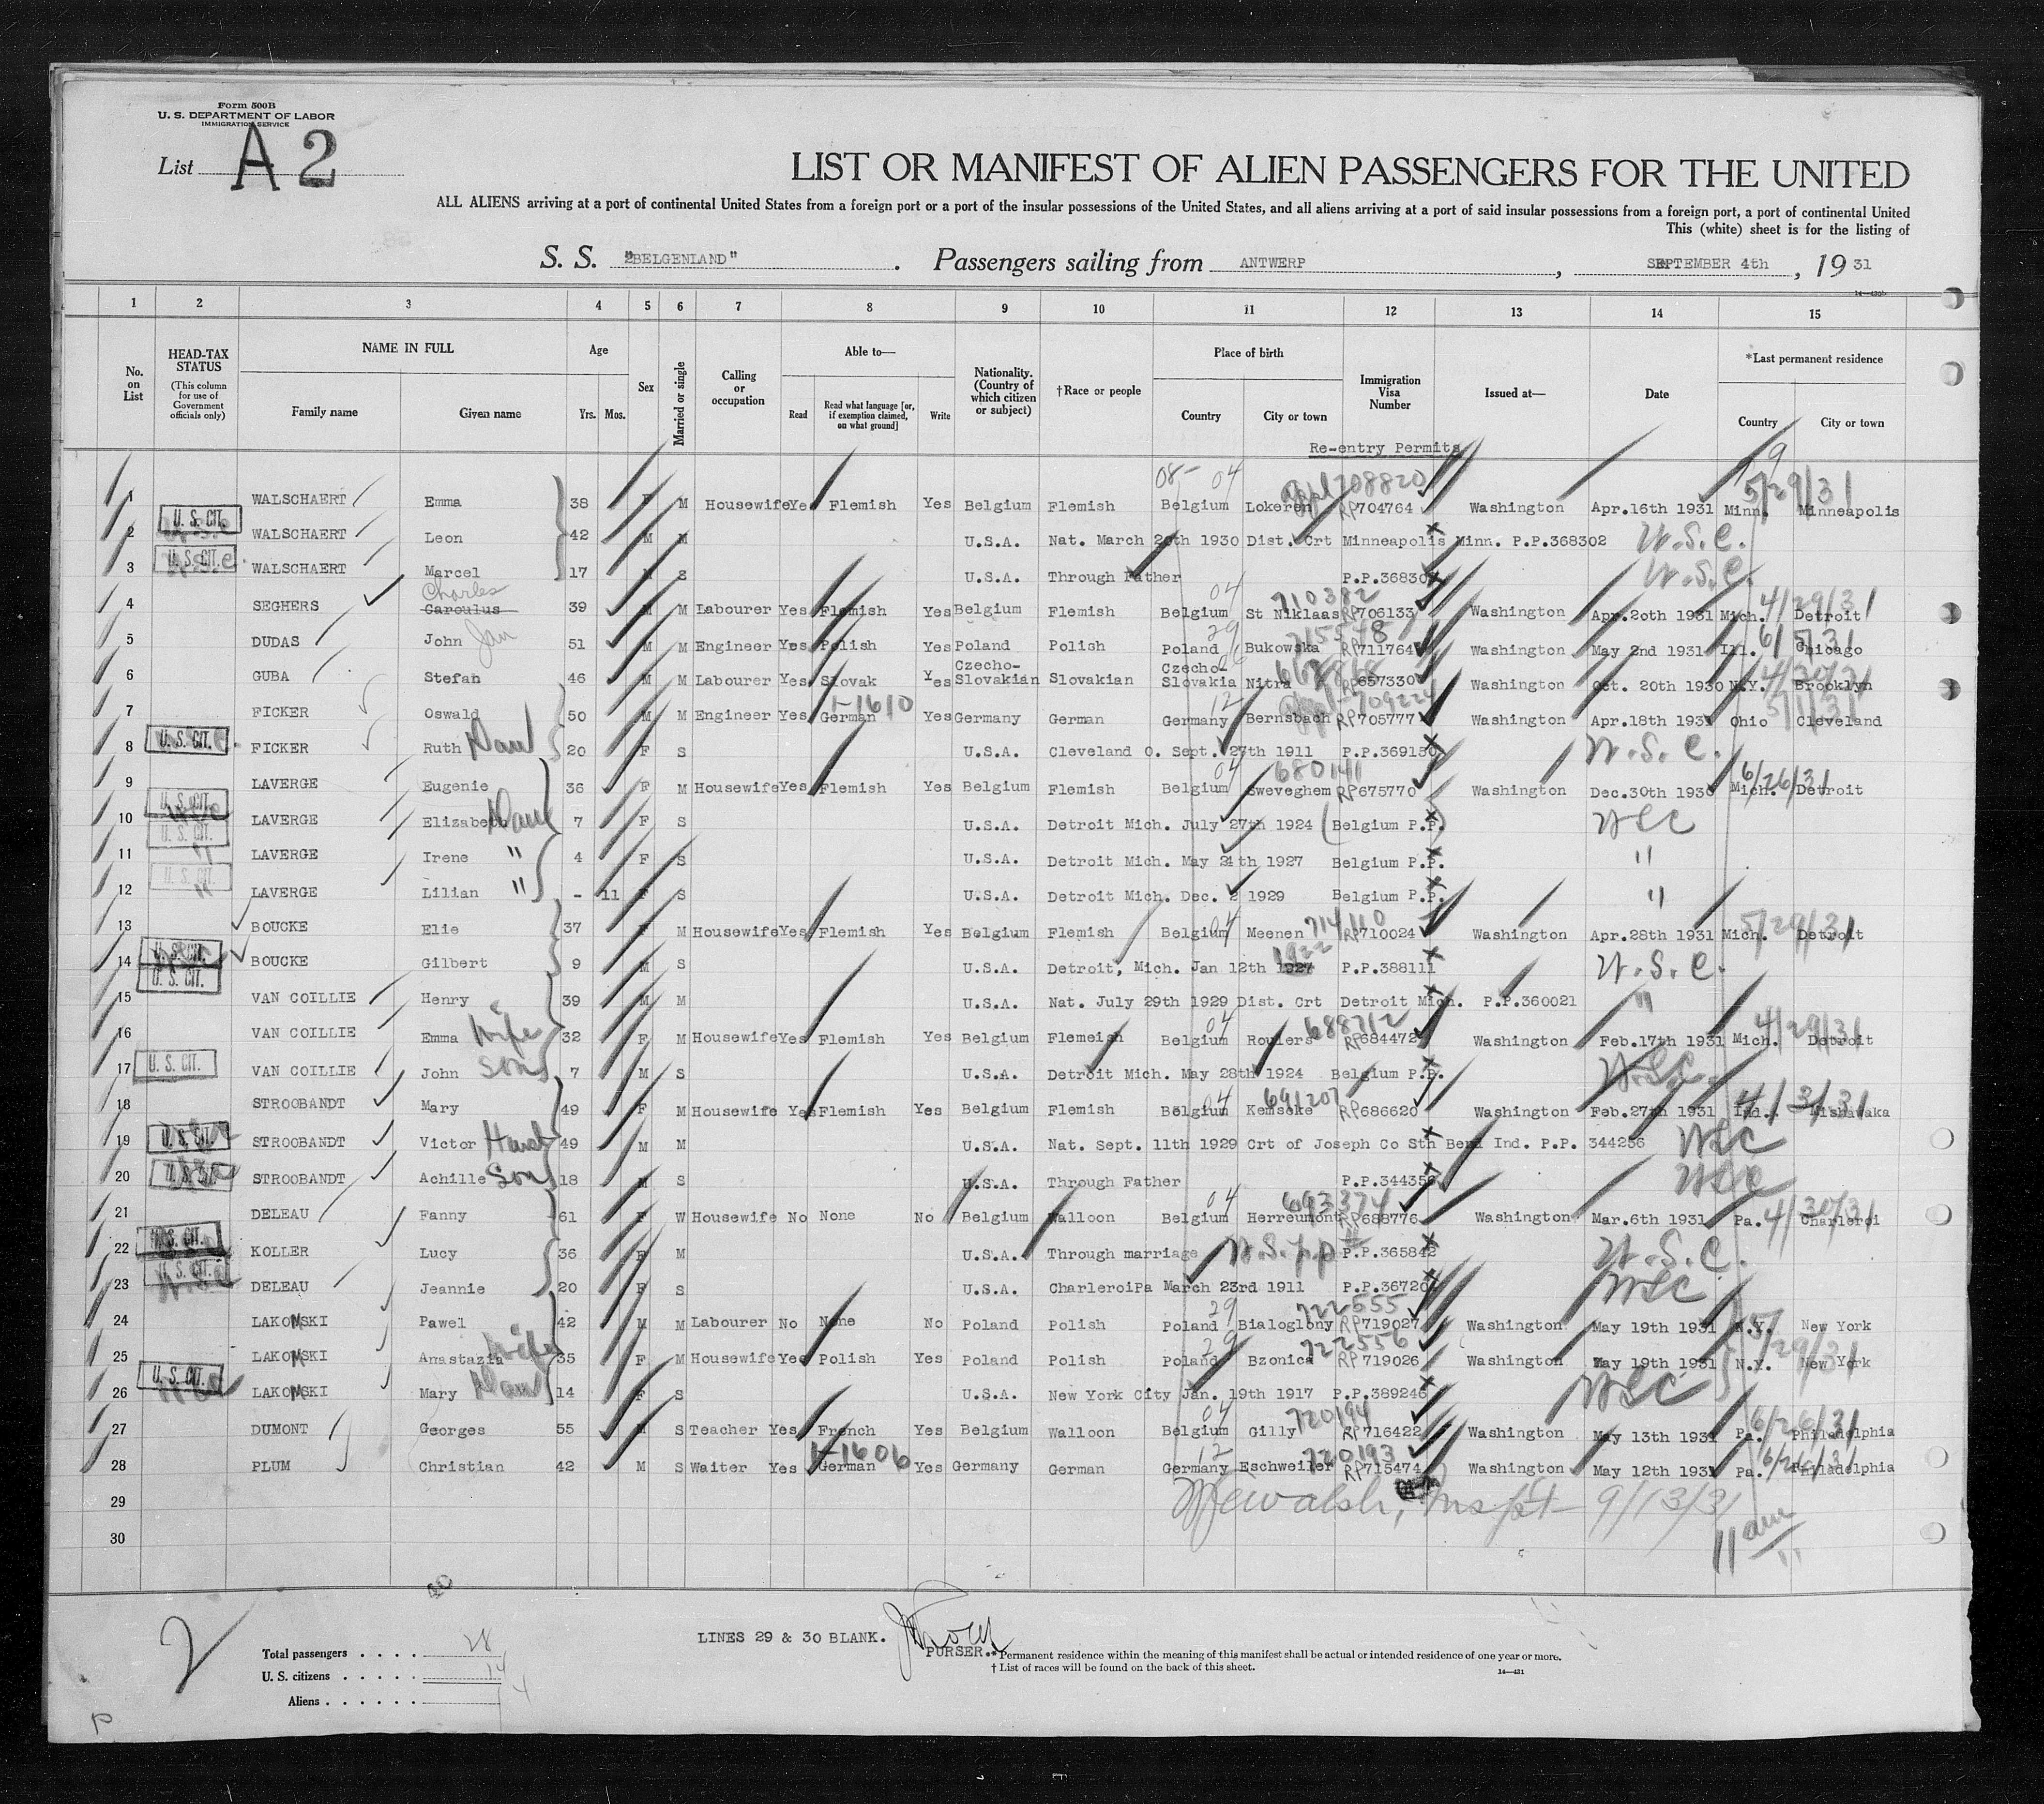 Form 500B
U. S. DEPARTMENT OF LABOR
IMMIGRATION SERVICE
List A 2
LIST OR MANIFEST OF ALIEN PASSENGERS FOR THE UNITED
ALL ALIENS arriving at a port of continental United States from a foreign port or a port of the insular possessions of the United States, and all aliens arriving at a port of said insular possessions from a foreign port, a port of continental United
This (white) sheet is for the listing of
S. S. "BELGENLAND" . Passengers sailing from ANTWERP , SEPTEMBER 4th , 19 31
1 2 3 4 5 6 7 8 9 10 11 12 13 14 15
No. on List
HEAD-TAX STATUS (This column for use of Government officials only)
NAME IN FULL
Family name Given name
Age
Yrs. Mos.
Sex
Married or single
Calling or occupation
Able to—
Read Read what language [or, if exemption claimed, on what ground] Write
Nationality. (Country of which citizen or subject)
†Race or people
Place of birth
Country City or town
Immigration Visa Number
Issued at—
Date
*Last permanent residence
Country City or town
Re-entry Permits
1 WALSCHAERT Emma 38 F M Housewife Yes Flemish Yes Belgium Flemish 08- 04 Belgium Lokeren 708820 RP704764 Washington Apr.16th 1931 Minn. Minneapolis 5/29/31
2 U. S. CIT. WALSCHAERT Leon 42 M M U.S.A. Nat. March 20th 1930 Dist. Crt Minneapolis Minn. P.P.368302 U.S.C.
3 U. S. CIT. WALSCHAERT Marcel 17 M S U.S.A. Through Father P.P.36830 U.S.C.
4 SEGHERS Charles Caroulus 39 M M Labourer Yes Flemish Yes Belgium Flemish 04 Belgium St Niklaas 710382 RP706133 Washington Apr.20th 1931 Mich. Detroit 4/29/31
5 DUDAS John Jan 51 M M Engineer Yes Polish Yes Poland Polish 29 Poland Bukowska 715548 RP711764 Washington May 2nd 1931 Ill. Chicago 6/5/31
6 GUBA Stefan 46 M M Labourer Yes Slovak Yes Czecho-Slovakian Slovakian Czecho-Slovakia Nitra RP657330 Washington Oct. 20th 1930 N.Y. Brooklyn 4/30/31
7 FICKER Oswald 50 M M Engineer Yes German 1-1610 Yes Germany German 12 Germany Bernsbach 709224 RP705777 Washington Apr.18th 1931 Ohio Cleveland 5/1/31
8 U. S. CIT. FICKER Ruth Dau 20 F S U.S.A. Cleveland O. Sept. 27th 1911 P.P.369150 U.S.C.
9 LAVERGE Eugenie 36 F M Housewife Yes Flemish Yes Belgium Flemish 04 Belgium Sweveghem 680141 RP675770 Washington Dec.30th 1930 Mich. Detroit 6/26/31
10 U. S. CIT. LAVERGE Elizabeth Dau 7 F S U.S.A. Detroit Mich. July 27th 1924 (Belgium P.P.) USC
11 U. S. CIT. LAVERGE Irene " 4 F S U.S.A. Detroit Mich. May 24th 1927 Belgium P.P. "
12 U. S. CIT. LAVERGE Lilian " - 11 F S U.S.A. Detroit Mich. Dec. 2 1929 Belgium P.P. "
13 BOUCKE Elie 37 F M Housewife Yes Flemish Yes Belgium Flemish 04 Belgium Meenen 714110 RP710024 Washington Apr.28th 1931 Mich. Detroit 5/29/31
14 U. S. CIT. BOUCKE Gilbert 9 M S U.S.A. Detroit, Mich. Jan 12th 1922 1927 P.P.388111 U.S.C.
15 U. S. CIT. VAN COILLIE Henry 39 M M U.S.A. Nat. July 29th 1929 Dist. Crt Detroit Mich. P.P.360021 "
16 VAN COILLIE Emma Wife 32 F M Housewife Yes Flemish Yes Belgium Flemeish 04 Belgium Roulers 688712 RP684472 Washington Feb.17th 1931 Mich. Detroit 4/29/31
17 U. S. CIT. VAN COILLIE John Son 7 M S U.S.A. Detroit Mich. May 28th 1924 Belgium P.P. U.S.C.
18 STROOBANDT Mary 49 F M Housewife Yes Flemish Yes Belgium Flemish 04 Belgium Kemseke 691207 RP686620 Washington Feb.27th 1931 Ind. Mishawaka
19 U. S. CIT. STROOBANDT Victor Husb 49 M M U.S.A. Nat. Sept. 11th 1929 Crt of Joseph Co Sth Bend Ind. P.P. 344256 USC
20 U. S. CIT. STROOBANDT Achille Son 18 M S U.S.A. Through Father P.P.344356 USC
21 DELEAU Fanny 61 F W Housewife No None No Belgium Walloon 04 Belgium Herreumont 693374 RP688776 Washington Mar.6th 1931 Pa. Charleroi 4/30/31
22 U. S. CIT. KOLLER Lucy 36 F M U.S.A. Through marriage P.P.365842 U.S.C.
23 U. S. CIT. DELEAU Jeannie 20 F S U.S.A. CharleroiPa March 23rd 1911 P.P.36720 USC
24 LAKOMSKI Pawel 42 M M Labourer No None No Poland Polish 29 Poland Bialoglony 722555 RP719027 Washington May 19th 1931 N.Y. New York
25 LAKOMSKI Anastazia Wife 35 F M Housewife Yes Polish Yes Poland Polish 29 Poland Bzonica 722556 RP719026 Washington May 19th 1931 N.Y. New York 5/29/31
26 U. S. CIT. LAKOMSKI Mary Dau 14 F S U.S.A. New York City Jan. 19th 1917 P.P.389246 USC
27 DUMONT Georges 55 M S Teacher Yes French Yes Belgium Walloon 04 Belgium Gilly 720194 RP716422 Washington May 13th 1931 Pa. Philadelphia 6/26/31
28 PLUM Christian 42 M S Waiter Yes German 1-1606 Yes Germany German 12 Germany Eschweiler 720193 RP715474 Washington May 12th 1931 Pa. Philadelphia 6/26/31
29 Inspt 9/13/31
30 11 am
2
LINES 29 & 30 BLANK.
PURSER.
Total passengers . . . . 28
U. S. citizens . . . . . 14
Aliens . . . . . .
*Permanent residence within the meaning of this manifest shall be actual or intended residence of one year or more.
† List of races will be found on the back of this sheet.
14—431